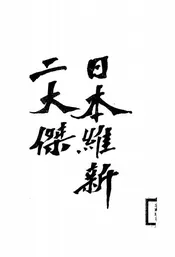 日本維新
二大傑